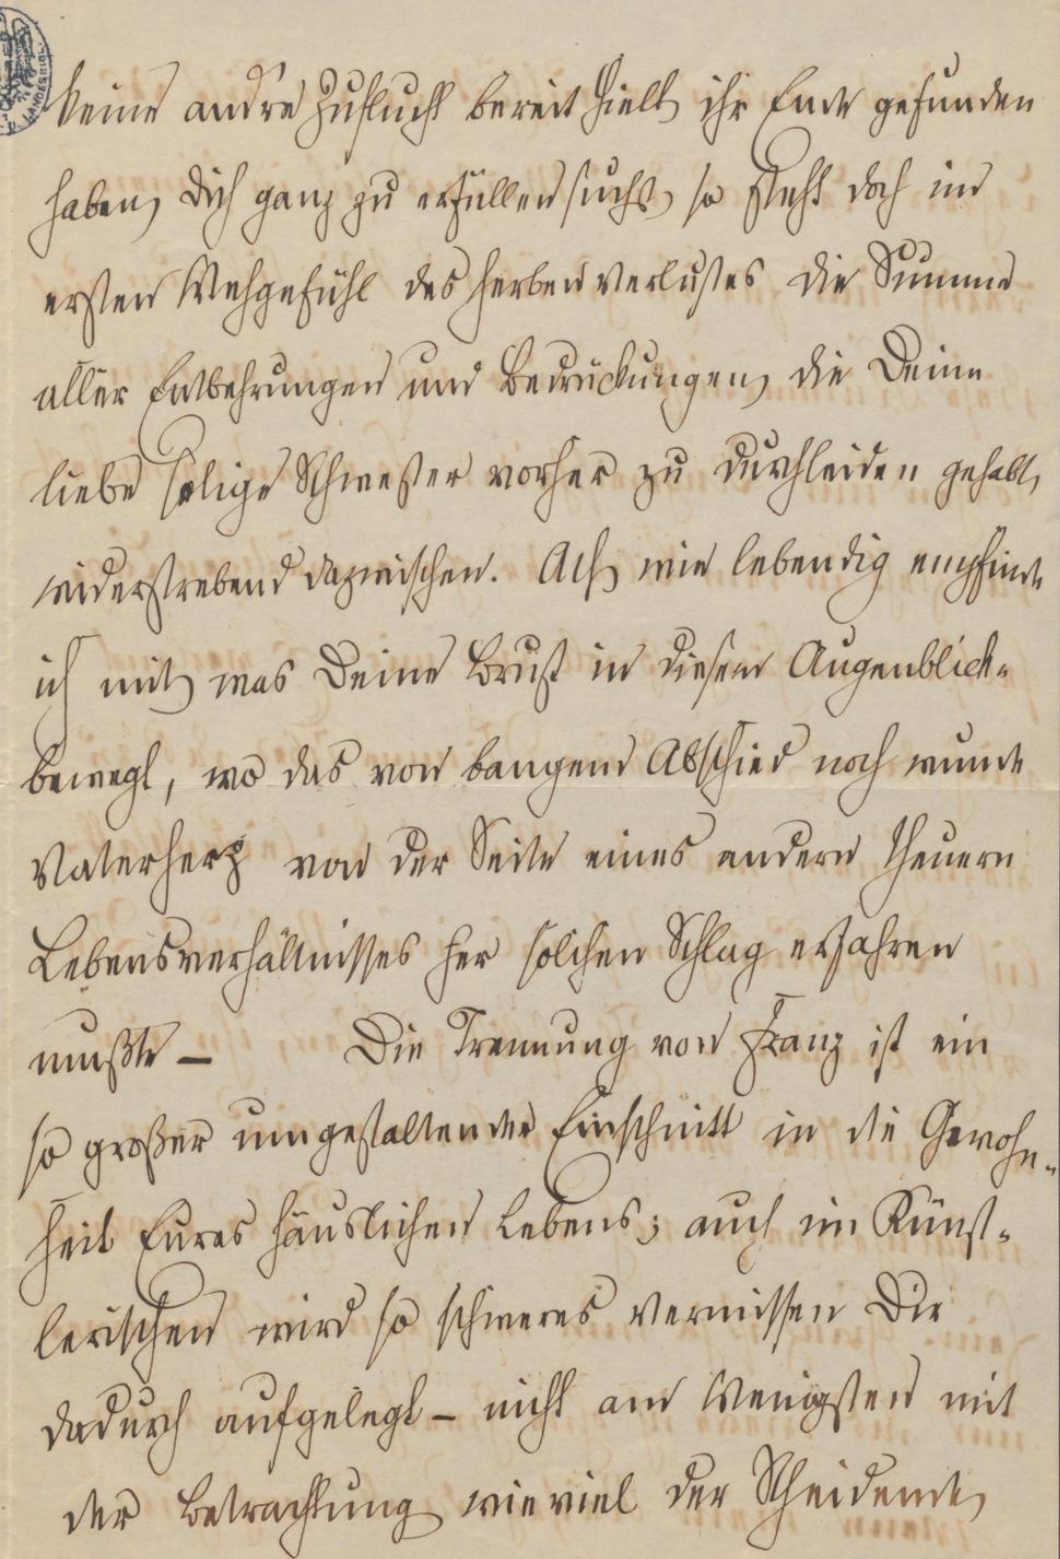 keine andre Zuflucht bereit hielt, ihr Ende gefunden
haben, Dich ganz zu erfüllen sucht, so steht doch im
ersten Wehgefühl des herben Verlustes die Summe
aller Entbehrungen und Bedrückungen, die Deine
liebe selige Schwester vorher zu durchleiden gehabt,
widerstrebend dazwischen. Ach, wie lebendig empfinde
ich mit, was Deine Brust in diesem Augenblick
bewegt, wo das von bangem Abschied noch wunde
Vaterherz von der Seite eines andern theuern
Lebensverhältnisses her solchen Schlag erfahren
mußte – Die Trennung von Franz ist ein
so großer umgestaltender Einschnitt in die Gewohn-
heit Eures häuslichen Lebens; auch im Künst-
lerischen wird so schweres Vermissen Dir
dadurch aufgelegt – nicht am Wenigsten mit
der Betrachtung, wie viel der Scheidende,